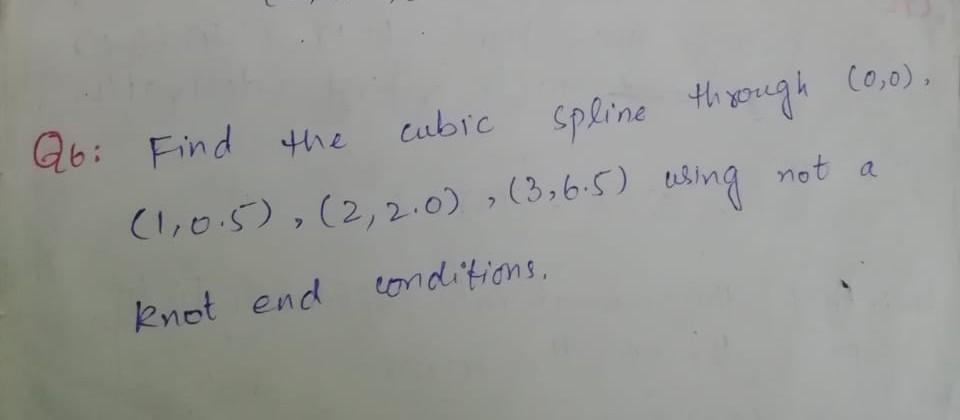 Q6: Find the cubic spline through (0,0),
(1,0.5), (2,2.0), (3,6.5) using not a
knot end conditions.